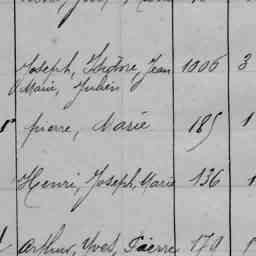 Joseph, Théodore, Jean 1006 3
Marie, Julien
pierre, Marie 185 1
Henri, Joseph, Marie 136 1
Arthur, Yves, Pierre 179